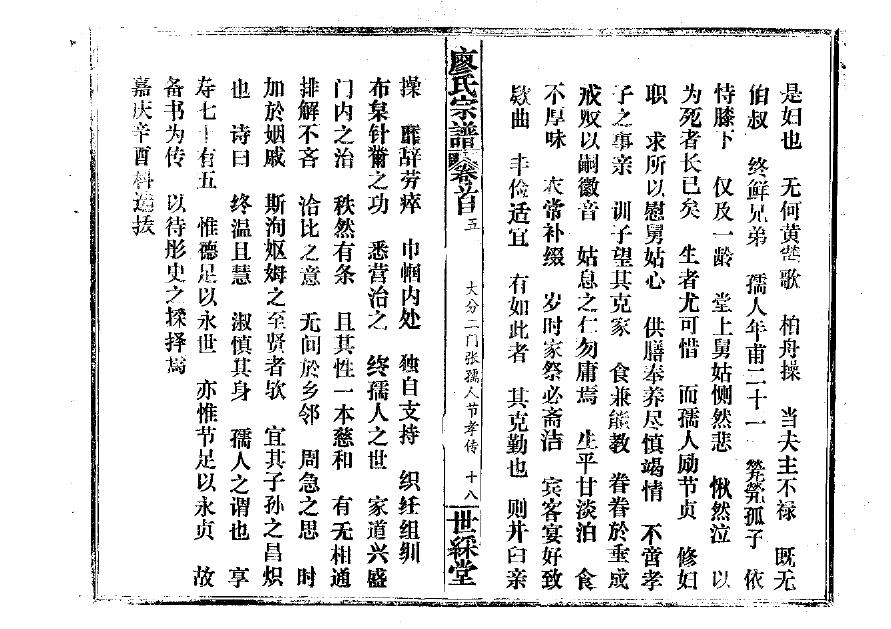 是妇也 无何黄鹄歌 柏舟操 当夫主不禄 既无
伯叔 终鲜兄弟 孺人年甫二十一 茕茕孤子 依
恃膝下 仅及一龄 堂上舅姑恻然悲 愀然泣 以
为死者长已矣 生者尤可惜 而孺人励节贞 修妇
职 求所以慰舅姑心 供膳奉养尽慎竭情 不啻孝
子之事亲 训子望其克家 食兼能教 眷眷於垂成
戒驭以嗣徽音 姑息之仁勿庸焉 生平甘淡泊 食
不厚味 衣常补缀 岁时家祭必斋洁 宾客宴好致
欵曲 丰俭适宜 有如此者 其克勤也 则井臼亲
廖氏宗譜 卷首 五 大分二门张孺人节孝传 十八 世綵堂
操 靡辞劳瘁 巾帼内处 独自支持 织纴组紃
布枲针黹之功 悉营治之 终孺人之世 家道兴盛
门内之治 秩然有条 且其性一本慈和 有无相通
排解不吝 洽比之意 无间於乡邻 周急之思 时
加於姻戚 斯洵妪姆之至贤者欤 宜其子孙之昌炽
也 诗曰 终温且慧 淑慎其身 孺人之谓也 享
寿七十有五 惟德足以永世 亦惟节足以永贞 故
备书为传 以待彤史之採择焉
嘉庆辛酉科选拔